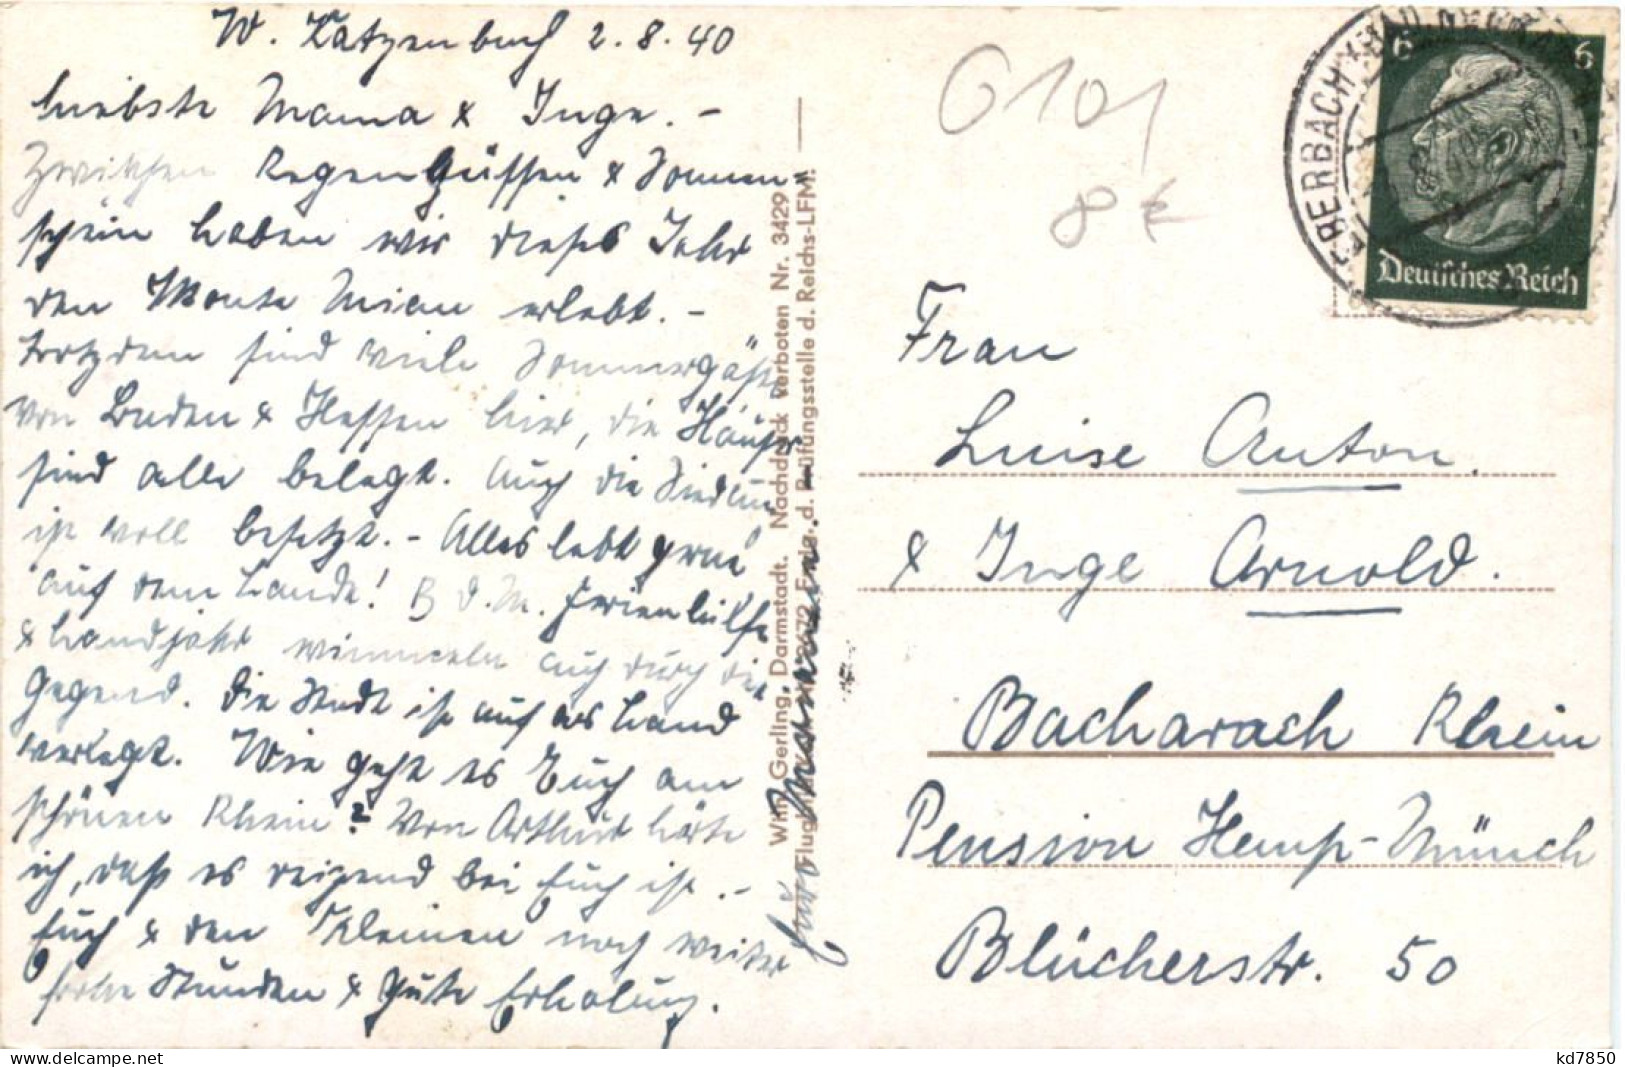 W. Katzenbach 2.8.40
Liebste Mama & Inge. -
Zwischen Regengüssen & Sonnen=
schein haben wir dieses Jahr
den Monte Mian erlebt. -
trotzdem sind viele Sommergäste
von Baden & Hessen hier, die Häuser
sind alle belegt. Auch die Siedlung
ist voll besetzt. - Alles lebt gerne
auf dem Lande! B.d.M. Ferienhilfe
& Landjahr wimmeln auch durch die
Gegend. Die Stadt ist aufs Land
verlegt. Wie geht es Euch am
schönen Rhein? Von Arthur hörte
ich, daß es reizend bei Euch ist. -
Euch & den Kleinen noch weiter
frohe Stunden & gute Erholung.
Eure
Wilh. Gerling, Darmstadt. Nachdruck verboten Nr. 3429
d. Prüfungsstelle d. Reichs-LFM.
G 101
8 €
EBERBACH
6 6
Deutsches Reich
Frau
Luise Anton.
& Inge Arnold.
Bacharach Rhein
Pension Hemp-Münch
Blücherstr. 50
https://www.delcampe.net
kd7850